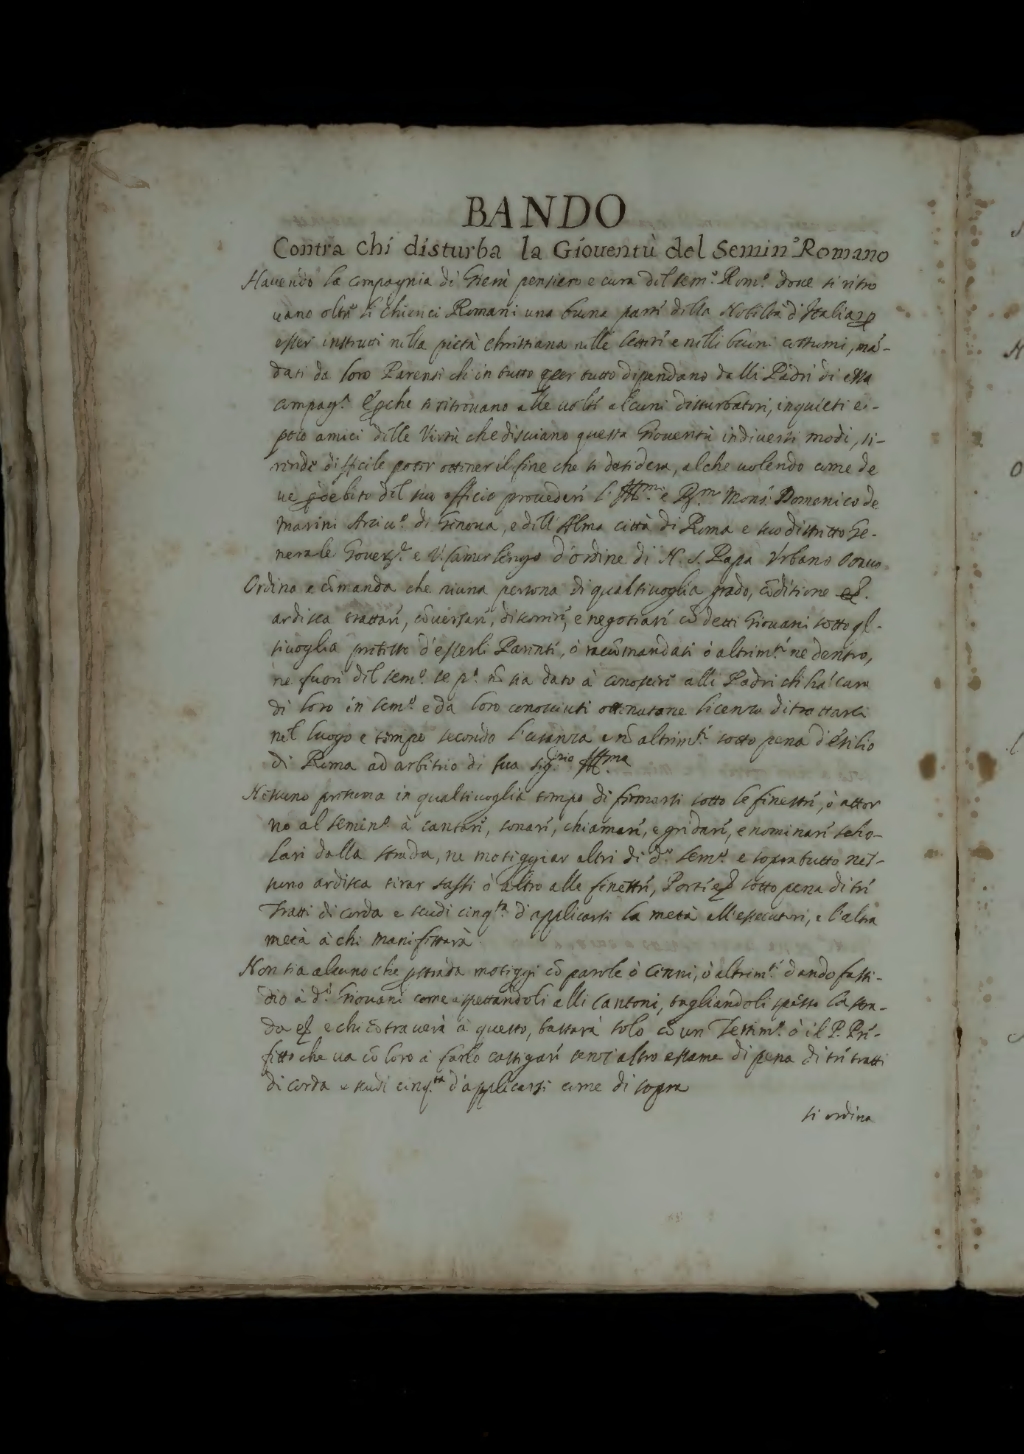 BANDO
Contra chi disturba la Gioventù del Semin.º Romano
Havendo la compagnia di Giesù pensiero e cura del sem.º Rom.º dove si ritro
vano oltre li chierici Romani una buona parte della Nobiltà d'Italia p
esser instrutti nella pietà christiana nelle lettere e nelli buoni costumi, má-
dati da loro Parenti ch'in tutto e per tutto dipendano dalli Padri di essa
compag.ª E pche si ritrovano alle volte alcuni disturbatori, inquieti e
poco amici delle Virtù che disviano questa Gioventù in diversi modi, si
rende difficile poter ottener il fine che si desidera, al che volendo come de
ve p debito del suo officio provedere l'Ill.mo e R.mo Mons.r Domenico de
Marini Arciv.º di Genova, e dell'Alma città di Roma e suo distretto Ge-
nerale Gover.re e Vicamerlengo d'ordine di N. S. Papa Urbano Ottavo
Ordina e cómanda che niuna persona di qualsivoglia grado, códitione
ardisca trattare, cóversare, discorrere, e negotiare có detti Giovani sotto ql-
sivoglia pretesto d'esserli Parenti, ò raccómandati ò altrim.te ne dentro,
ne fuori del sem.º se p.ª nó sia dato à conoscere alli Padri ch'hà cura
di loro in sem.º e da loro conosciuti ottenutone licenza di trattarli
nel luogo e tempo secondo l'usanza e nó altrim.te sotto pena d'essilio
di Roma ad arbitrio di sua Sig.ria Ill.ma
Nessuno presuma in qualsivoglia tempo di fermarsi sotto le finestre, ò attor
no al semin.º à cantare, sonare, chiamare, e gridare, e nominare scho-
lari dalla strada, ne motteggiar altri di d.º sem.º e sopra tutto nes-
suno ardisca tirar sassi ò altro alle finestre, Porte sotto pena di tre
Tratti di corda e scudi cinq.ta d'applicarsi la metà all'essecutori, e l'altra
metà à chi manifestarà
Non sia alcuno che p strada motteggi có parole ò Cenni, ò altrim.te dando fasti-
dio à d.i Giovani come aspettandoli alli Cantoni, tagliandoli spesso la stra-
da e chi cótraverà à questo, bastarà solo có un Testim.º ò il P. Pre-
fetto che va có loro à farlo castigare senz'altro essame di pena di tre tratti
di corda e scudi cinq.ta d'applicarsi come di sopra
Si ordina